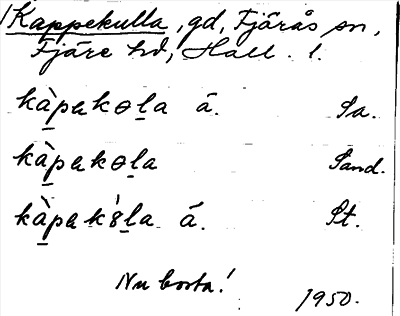 Kappekulla, gd, Fjärås sn,
Fjäre hd, Hall. 1.
kàpakɵla á. Sa.
kàpakɵla Sand.
kàpak'ɵ̀la á. St.
Nu borta!
1950.